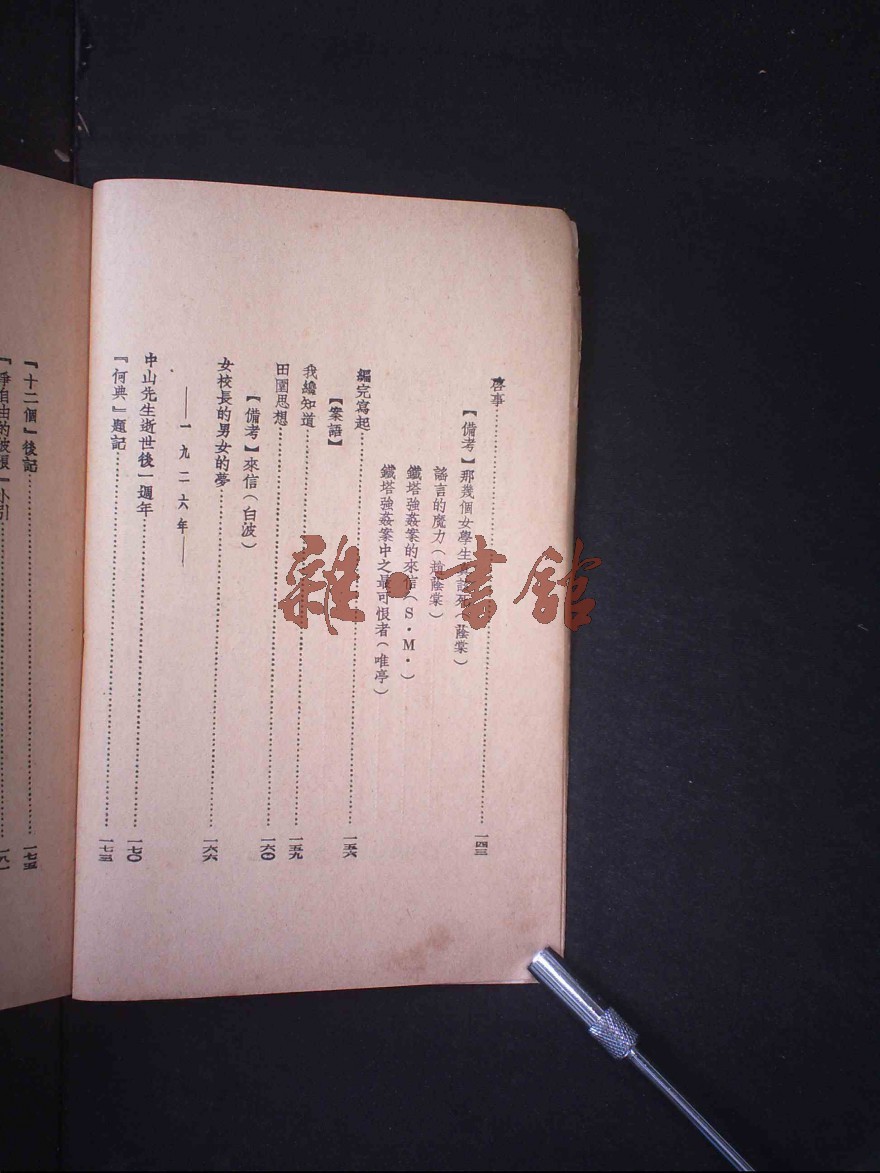 啓事⋯⋯一四三
【備考】那幾個女學生該死(蔭棠)
謠言的魔力(趙蔭棠)
鐵塔強姦案的來信(S・M・)
鐵塔強姦案中之最可恨者(唯亭)
編完寫起⋯⋯一五六
【案語】
我纔知道⋯⋯一五九
田園思想⋯⋯一六〇
【備考】來信(白波)
女校長的男女的夢⋯⋯一六六
——一九二六年——
中山先生逝世後一週年⋯⋯一七〇
『何典』題記⋯⋯一七三
『十二個』後記⋯⋯一七五
爭自由的波浪』小引⋯⋯一八一
雜・書館